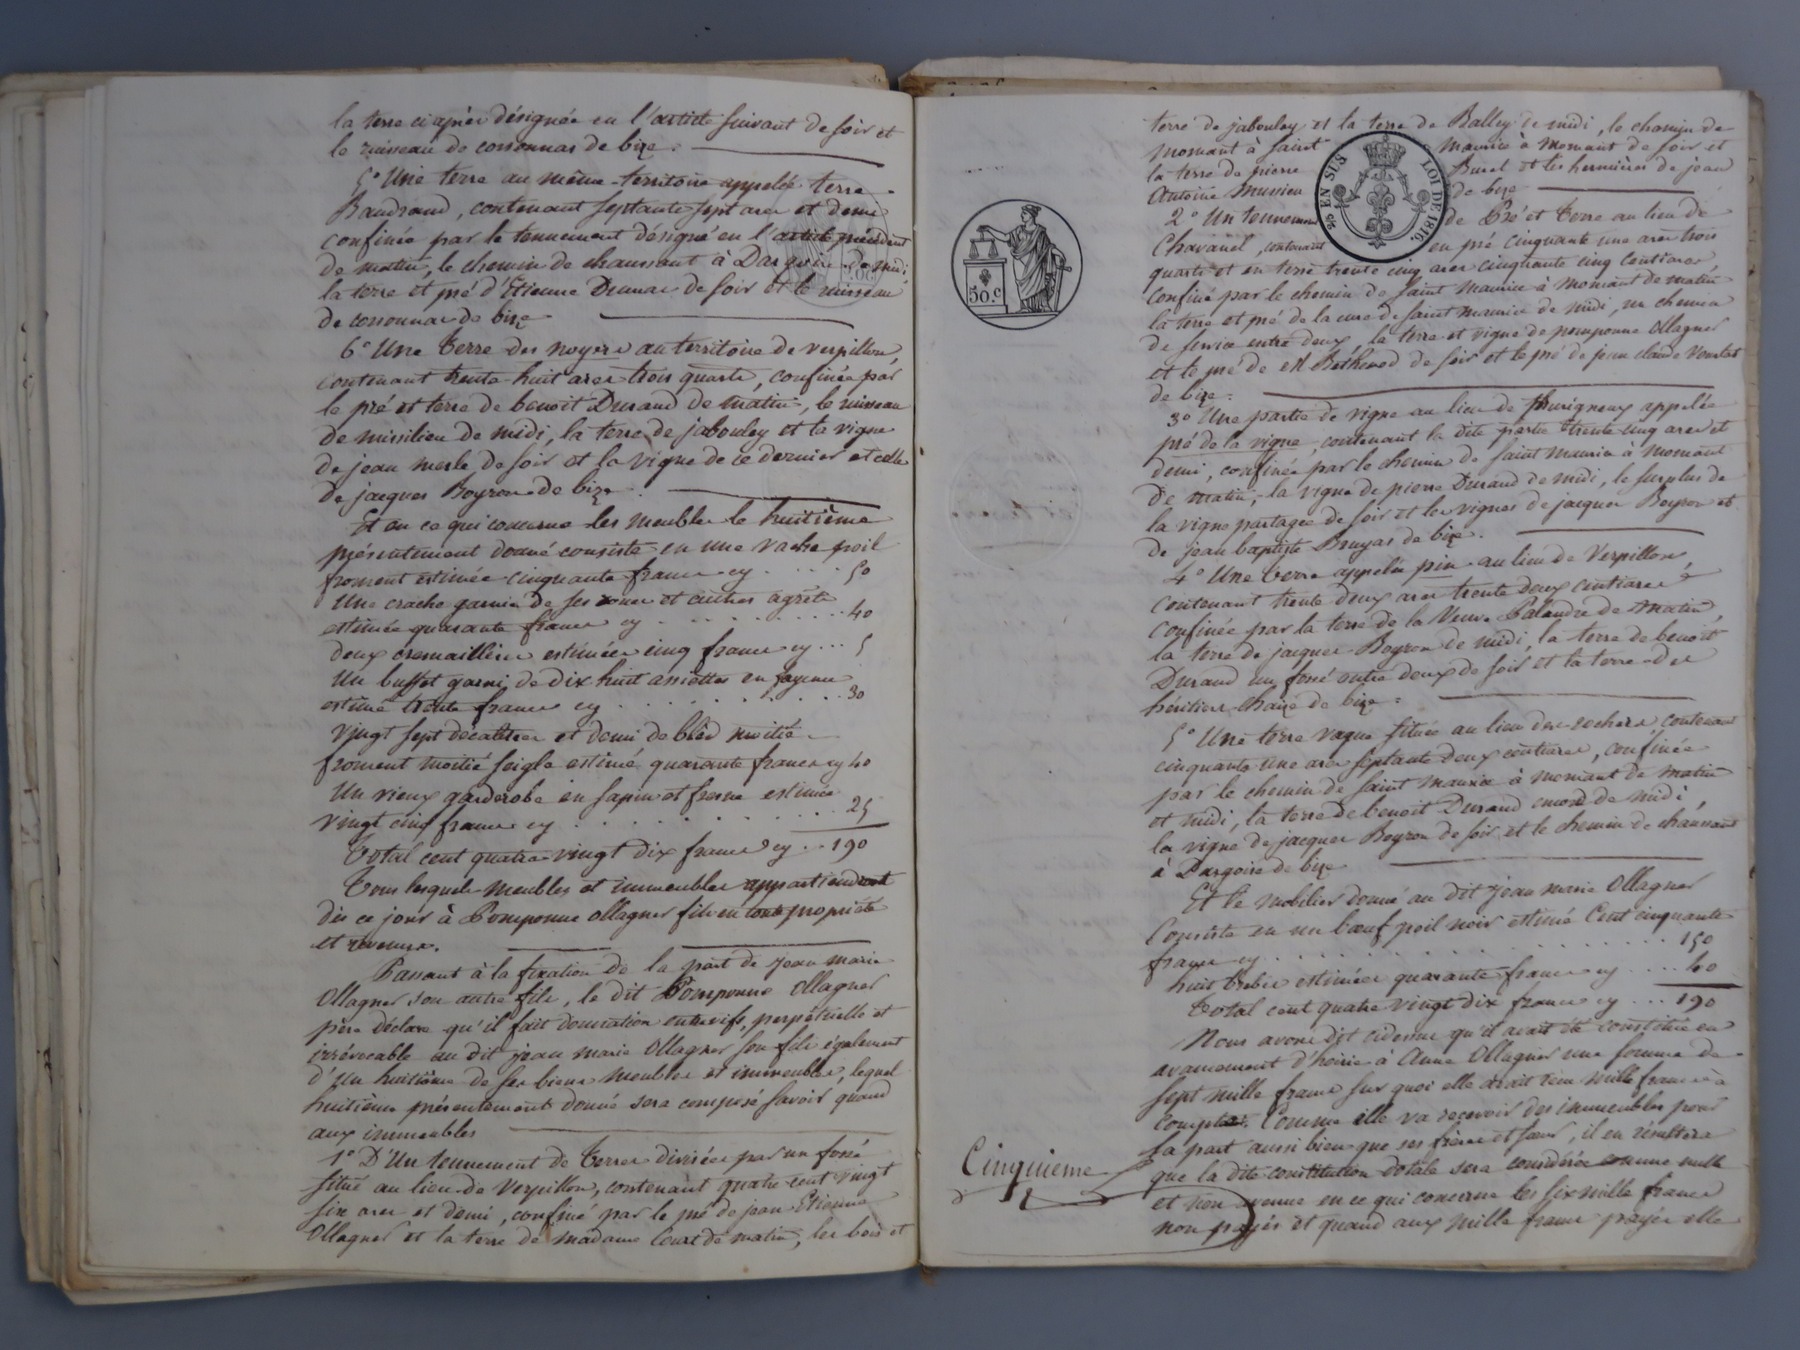 la terre ci après désignée en l'article suivant de soir et
le ruisseau de corsonnas de bize.
5° Une terre au même territoire appelée terre
Baudrand, contenant septante sept ares et demi
confinée par le tennement désigné en l'article précédent
de matin, le chemin de chaussant à Dargoire de midi,
la terre et pré d'Etienne Dumas de soir et le ruisseau
de corsonnas de bize
6° Une terre des noyers au territoire de verpillon,
contenant trente huit ares trois quarts, confinée par
le pré et terre de benoit Durand de matin, le ruisseau
de missilieu de midi, la terre de jabouley et la vigne
de jean merle de soir et la vigne de ce dernier et celle
de jacques Boyron de bize.
Et en ce qui concerne les meubles le huitième
présentement donné consiste en une vache poil
froment estimée cinquante francs cy .... 50
Une crache garnie de ses roues et autres agrêts
estimée quarante francs cy ........ 40
deux cremaillères estimées cinq francs cy ... 5
Un buffet garni de dix huit assiettes en fayence
estimé trente francs cy ......... 30
vingt sept décalitres et demi de bled moitié
froment moitié seigle estimé quarante francs cy 40
Un vieux garderobe en sapin et frene estimée
vingt cinq francs cy .......... 25
Total cent quatre vingt dix francs cy .. 190
Tous lesquels meubles et immeubles appartiendront
dès ce jour à Pomponne Ollagner fils en toute propriété
et revenus.
Passant à la fixation de la part de jean marie
Ollagner son autre fils, le dit Pomponne Ollagner
père déclare qu'il fait donation entrevifs, perpétuelle et
irrévocable au dit jean marie Ollagner son fils également
d'un huitième de ses biens meubles et immeubles, lequel
huitième présentement donné sera composé savoir quand
aux immeubles
1° D'Un tennement de Terres divisées par un fossé
situé au lieu de Verpillon, contenant quatre cent vingt
six ares et demi, confiné par le pré de jean Etienne
Ollagner et la terre de madame Court de matin, les bois et
terre de jabouley et la terre de Balley de midi, le chemin de
mornant à saint maurice à mornant de soir et
la terre de pierre Buret et les hermières de jean
Antoine musieu de bize
2° Un tennement de Pré et Terre au lieu de
Chavanel, contenant en pré cinquante une ares trois
quarts et en terre trente cinq ares cinquante cinq centiares
confiné par le chemin de saint maurice à mornant de matin
la terre et pré de la cure de saint maurice de midi, un chemin
de service entre deux, la terre et vigne de pomponne Ollagner
et le pré de Bethenod de soir et le pré de jean claude
de bize.
3° Une partie de vigne au lieu de appelée
pré de la vigne, contenant la dite partie trente cinq ares et
demi, confinée par le chemin de saint maurice à mornant
de matin, la vigne de pierre Durand de midi, le surplus de
la vigne partagée de soir et les vignes de jacques Boyron et
de jean baptiste Bruyas de bize.
4° Une terre appelée pin au lieu de Verpillon,
contenant trente deux ares trente deux centiares
confinée par la terre de la Veuve Palandre de matin,
la terre de jacques Boyron de midi, la terre de benoit
Durand un fossé entre deux de soir et la terre des
héritiers Chaize de bize.
5° Une terre vague située au lieu des rochers, contenant
cinquante une ares septante deux centiares, confinée
par le chemin de saint maurice à mornant de matin
et midi, la terre de benoit Durand encore de midi,
la vigne de jacques Boyron de soir et le chemin de chaussant
à Dargoire de bize
Et le mobilier donné au dit jean marie Ollagner
Consiste en un bœuf poil noir estimé Cent cinquante
francs cy ............ 150
huit brebis estimées quarante francs cy .... 40
Total cent quatre vingt dix francs cy ... 190
Nous avons dit cidessus qu'il avait été constitué en
avancement d'hoirie à Anne Ollagner une somme de
sept mille francs sur quoi elle avait reçu mille francs à
compte. Comme elle va recevoir des immeubles pour
sa part aussi bien que ses frères et sœur, il en résultera
que la dite constitution dotale sera considérée comme nulle
et non avenue en ce qui concerne les six mille francs
non payés et quand aux mille francs payés elle
Cinquieme
50.c
EN SUS
LOI DE 1816.